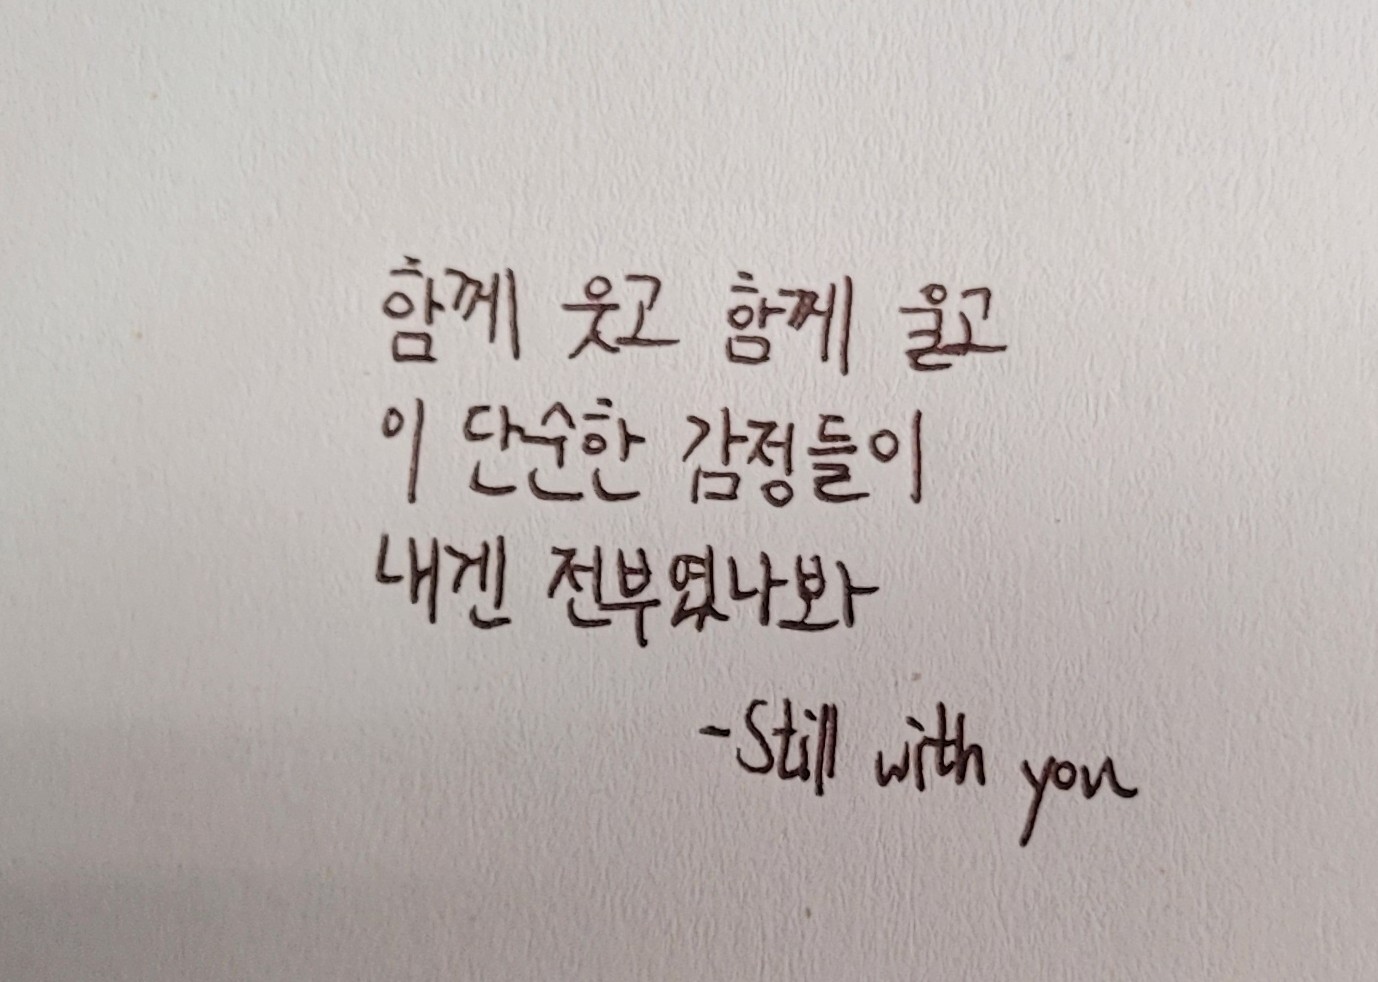 함께 웃고 함께 울고
이 단순한 감정들이
내겐 전부였나봐
-Still with you